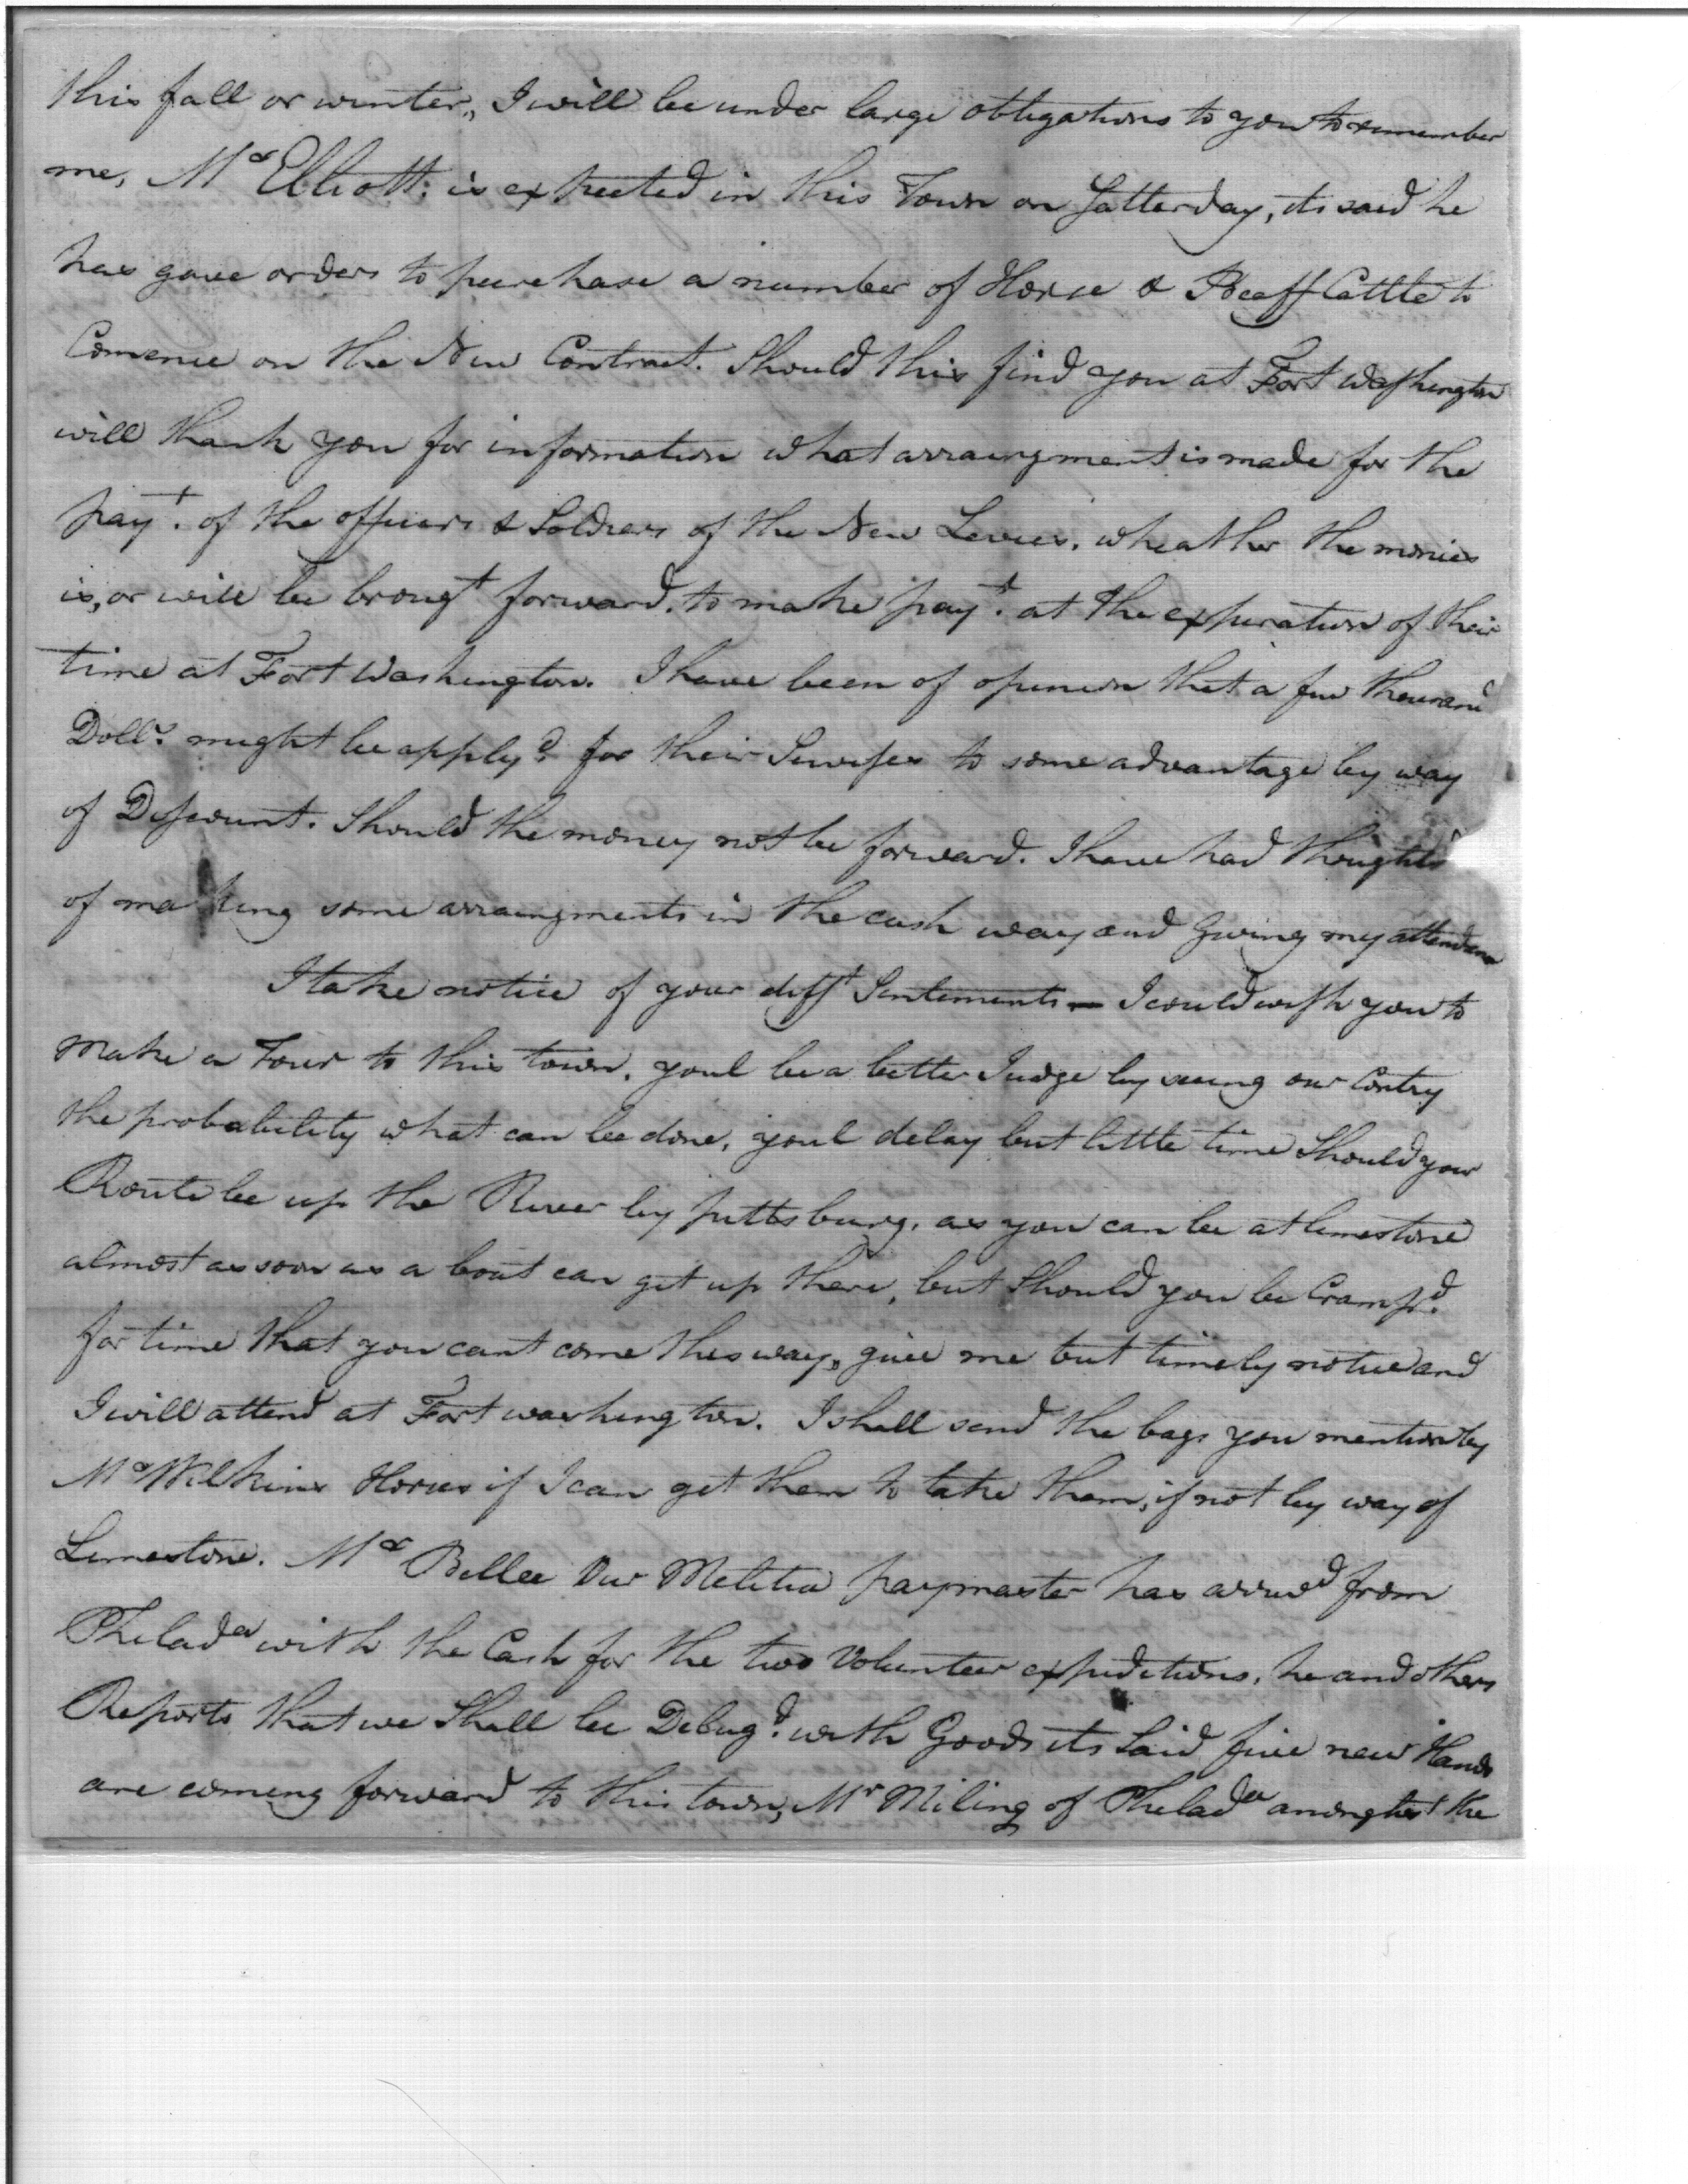 this fall or winter, I will be under large obligations to you to remember
me, Mr Elliott: is expected in this Town on Satterday, its said he
has gave orders to purchase a number of Horse & Beaff Cattle to
Comence on the New Contract. Should this find you at Fort Washington
will thank you for information what arraingment is made for the
payt. of the officers & Soldiers of the New Levies, wheather the monies
is, or will be brougt forward, to make payt. at the expiration of their
time at Fort Washington. I have been of opinion that a few thousand
Dolls. might be apply'd for their to some advantage by way
of Discount. Should the money not be forward. I have had thoughts
of making some arraingments in the cash way and Giving my attendance
I take notice of your difft Sentiments — I could wish you to
make a Tour to this town, youl be a better Judge by seeing our Contry
the probability what can be done, youl delay but little time Should your
Route be up the River by pittsburg, as you can be at limestone
almost as soon as a boat can git up there, but Should you be Cramp'd
for time that you cant come this way, give me but timely notice and
I will attend at Fort washington. I shall send the bags you mention by
Mr Wilkins Horses if I can get them to take them, if not by way of
Limestone. Mr Bellee Our Melitia paymaster has arrivd from
Philada with the Cash for the two Volunteer expiditions, he and others
Reports that we Shall be Delug'd with Goods its Said five new Hands
are coming forward to this town, Mr Miling of Philada amongtst the